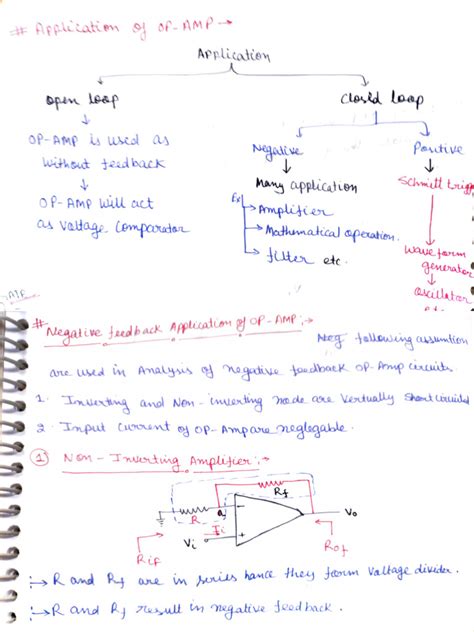 # Application of OP-AMP →
Application
Open loop
Closed loop
OP-AMP is used as
without feedback
OP-AMP will act
as voltage comparator
Negative
Positive
Many application
Ex
Amplifier
Mathematical operation.
filter etc.
Schmitt trigg
Wave form
generator
Oscillator
# Negative feedback Application of OP-AMP :→
following assumtion
are used in Analysis of negative feedback OP-Amp circuits.
1. Inverting and Non-inverting node are vertually short circuited
2. Input current of OP-Amp are neglegable.
1 Non-Inverting Amplifier :→
Rf
R
a
Ii
Vi
Vo
Rif
Rof
:→ R and Rf are in series hance they form voltage divider.
:→ R and Rf result in negative feedback.